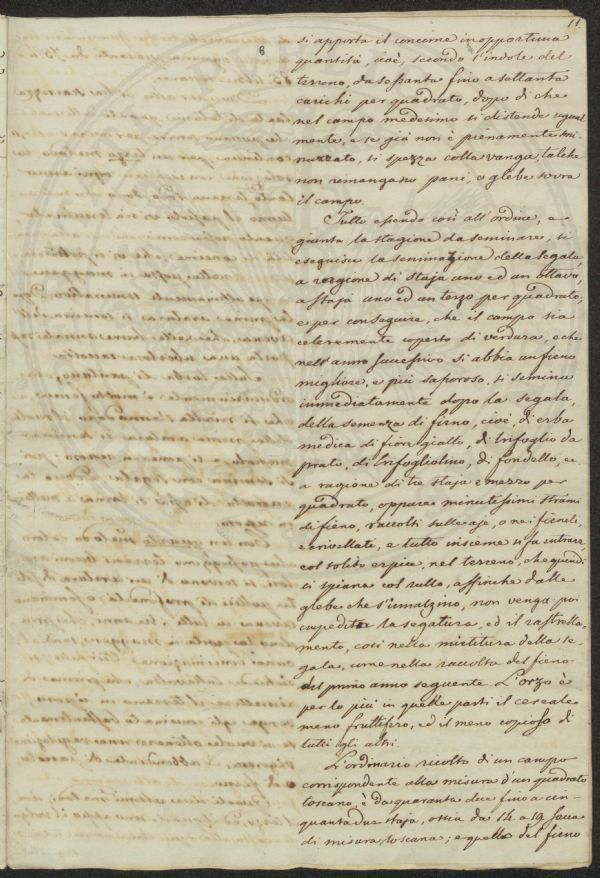 11
6
si apporta il concime in opportuna
quantità, cioè, secondo l'indole del
terreno, da sessanta fino a settanta
carichi per quadrato, dopo di che
nel campo medesimo si distende ugual
mente, e se già non è pienamente smi
nuzzato, si spezza colla vanga, talche
non rimangano pani, o glebe sovra
il campo.
Tutto essendo così all'ordine, e
giunta la stagione da seminare, si
eseguisce la seminazione della segala,
a ragione di staja uno ed un ottavo,
a staja uno ed un terzo per quadrato,
e per conseguire, che il campo sia
celeramente coperto di verdura, e che
nell'anno successivo si abbia un fieno
migliore, e più saporoso, si semina
immediatamente dopo la segala
della semenza di fieno, cioè, di erba
medica di fiore giallo, di trifoglio da
prato, di trifogliolino, di fondello, ec
a ragione di tre staja e mezzo per
quadrato, oppure minutissimi strami
di fieno, raccolti sulle aje, o nei fienili,
e crivellati, e tutto insieme si fa entrare,
col solito erpice, nel terreno, che quindi
si spiana col rullo, affinche dalle
glebe che s'innalzino, non venga poi
impedita la segatura, ed il rastrella-
mento, così nella mietitura della se-
gala, come nella raccolta del fieno
del primo anno seguente. L'orzo è
per lo più in quelle parti il cereale
meno fruttifero, ed il meno copioso di
tutti gli altri.
L'ordinario ricolto di un campo
corrispondente alla misura d'un quadrato
toscano, è da quaranta due fino a cin-
quantadue staja, ossia da 14 a 19 sacca
di misura toscana; e quello del fieno